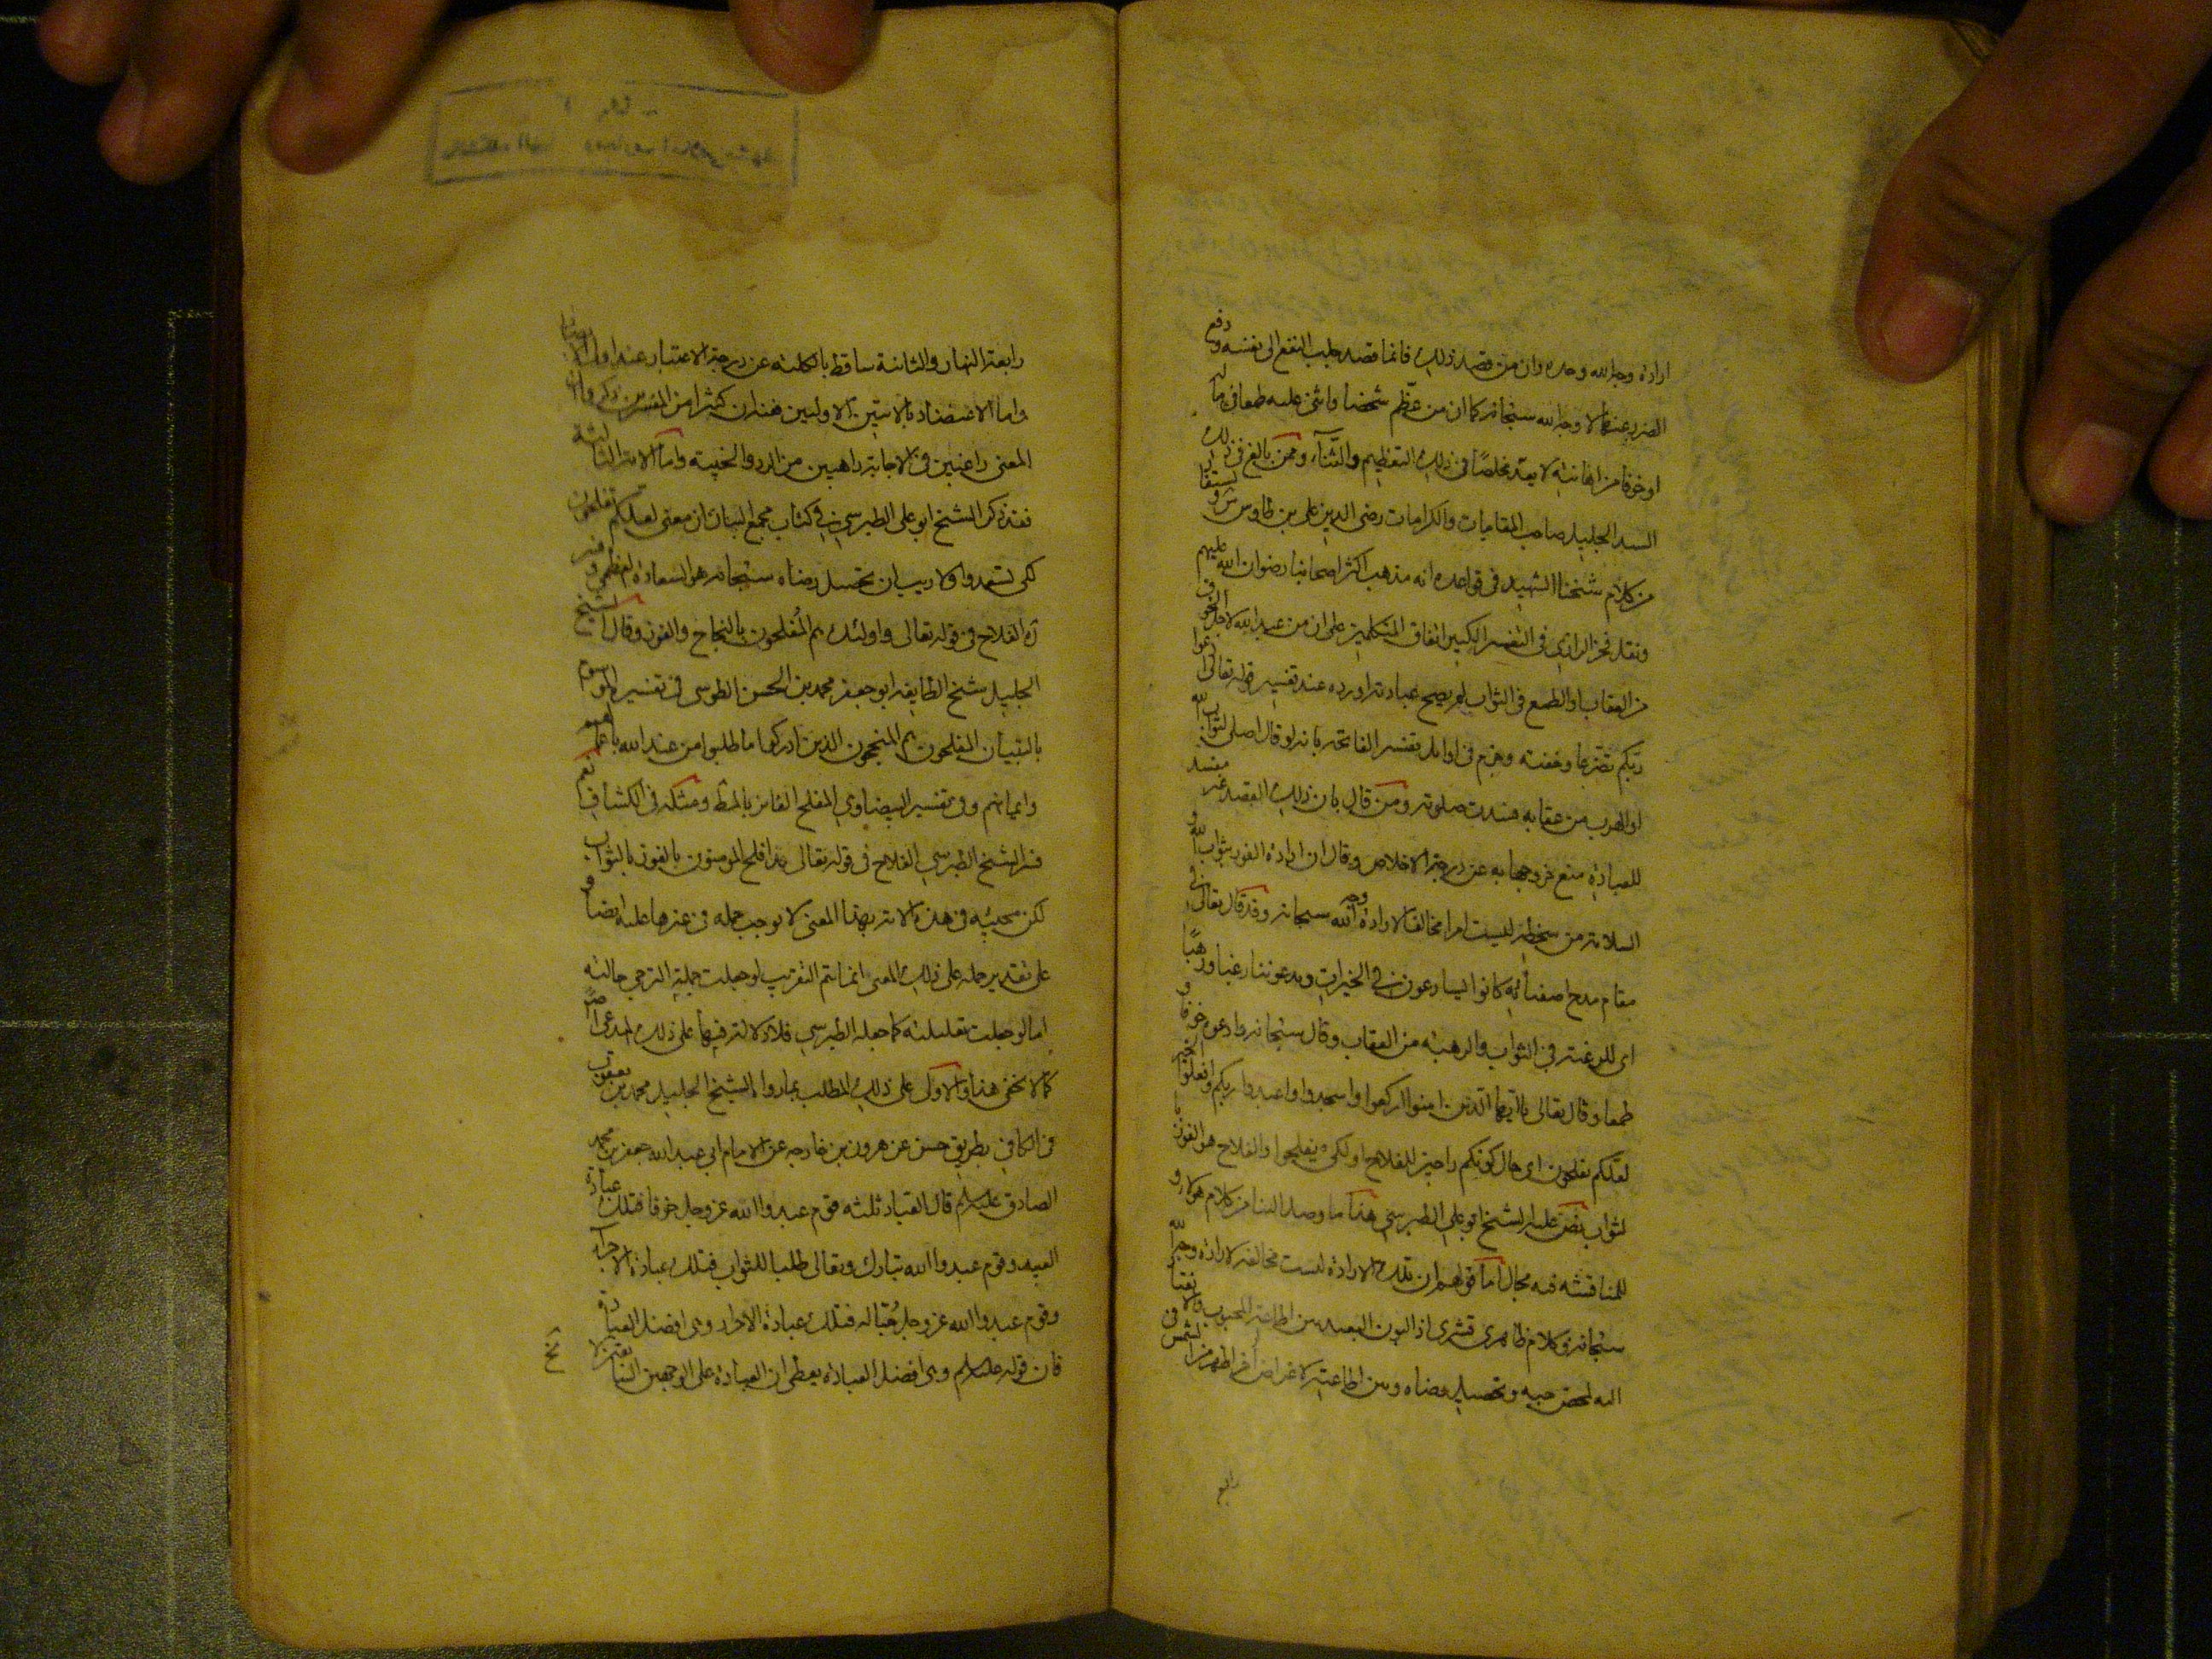 ارادة وجه الله وحده وان من قصد ذلك فانما قصد جلب النفع الى نفسه ودفع
الضرر عنها لا وجه الله سبحانه كما ان من عظّم شخصا واثنى عليه طمعا في ماله
او خوفا من اهانته لا يعدّ مخلصا في ذلك التعظيم والثناء وممن بالغ في ذلك
السيد الجليل صاحب المقامات والكرامات رضى الدين على بن طاوس
من كلام شيخنا الشهيد في قواعده انه مذهب اكثر اصحابنا رضوان الله عليهم
ونقل فخر الرازي في التفسير الكبير اتفاق المتكلمين على ان من عبد الله لاجل الخوف
من العقاب او الطمع في الثواب لم يصح عبادته اورده عند تفسير قوله تعالى ادعوا
ربكم تضرعا وخفية وجزم في اوايل تفسير الفاتحة بانه لو قال اصلى لثواب الله
او الهرب من عقابه فسدت صلوته ومن قال بان ذلك القصد غير مفسد
للعبادة منع خروجها به عن درجة الاخلاص وقال ان ارادة الفوز بثواب الله و
السلامة من سخطه ليست امرا مخالفا لارادة وجه الله سبحانه وقد قال تعالى في
مقام مدح اصفيائه كانوا يسارعون في الخيرات ويدعوننا رغبا ورهبا
اى للرغبة في الثواب والرهبة من العقاب وقال سبحانه وادعوه خوفا و
طمعا وقال تعالى يا ايها الذين امنوا اركعوا واسجدوا واعبدوا ربكم وافعلوا الخير
لعلكم تفلحون اى حال كونكم راجين للفلاح او لكى تفلحوا والفلاح هو الفوز با
لثواب نص عليه الشيخ ابو على الطبرسي هذا ما وصل الينا من كلام هؤلاء و
للمناقشة فيه مجال اما قولهم ان تلك الارادة ليست مخالفة لارادة وجه الله
سبحانه فكلام ظاهرى قشرى اذ البون البعيد بين اطاعة المحبوب والانقياد
اليه لمحض حبه وتحصيل رضاه وبين اطاعته لاغراض أخر اظهر من الشمس في
رابع
رابعة النهار والثانية ساقط بالكلية عن درجة الاعتبار عند اولى الابصار
واما الاعتضاد بالايتين الاوليين ففيه ان كثيرا من المفسرين ذكروا ان
المعنى راغبين في الاجابة راهبين من الرد والخيبة واما الاية الثالثة
فقد ذكر الشيخ ابو على الطبرسي في كتاب مجمع البيان ان معنى لعلكم تفلحون
لكى تسعدوا ولا ريب ان تحصيل رضاه سبحانه هو السعادة العظمى وفسر
ره الفلاح في قوله تعالى واولئك هم المفلحون بالنجاح والفوز وقال الشيخ
الجليل شيخ الطايفة ابو جعفر محمد بن الحسن الطوسى في تفسيره الموسوم
بالتبيان المفلحون هم المنجحون الذين ادركوا ما طلبوا من عند الله باعمالهم
وايمانهم وفي تفسير البيضاوي المفلح الفائز بالمط ومثله في الكشاف نعم
فسر الشيخ الطبرسي الفلاح في قوله تعالى قد افلح المومنون بالفوز بالثواب
لكن مجيئه في هذه الاية بهذا المعنى لا يوجب حمله في غيرها عليه ايضا و
على تقدير حمله على ذلك المعنى انما يتم التقريب لو جعلت جملة الترجي حالية
اما لو جعلت تعليلية كما جعله الطبرسي فلا دلالة فيها على ذلك المدعى اصلا
كما لا يخفى هذا والاولى على ذلك المطلب بما رواه الشيخ الجليل محمد بن يعقوب
في الكافي بطريق حسن عن هرون بن خارجه عن الامام ابي عبد الله جعفر بن محمد
الصادق عليه السلم قال العباد ثلثة قوم عبدوا الله عز وجل خوفا فتلك عبادة
العبيد وقوم عبدوا الله تبارك وتعالى طلبا للثواب فتلك عبادة الاجراء
وقوم عبدوا الله عز وجل حُبّا له فتلك عبادة الاحرار وهى افضل العبادة
فان قوله عليه السلم وهى افضل العبادة يعطى ان العبادة على الوجهين السا